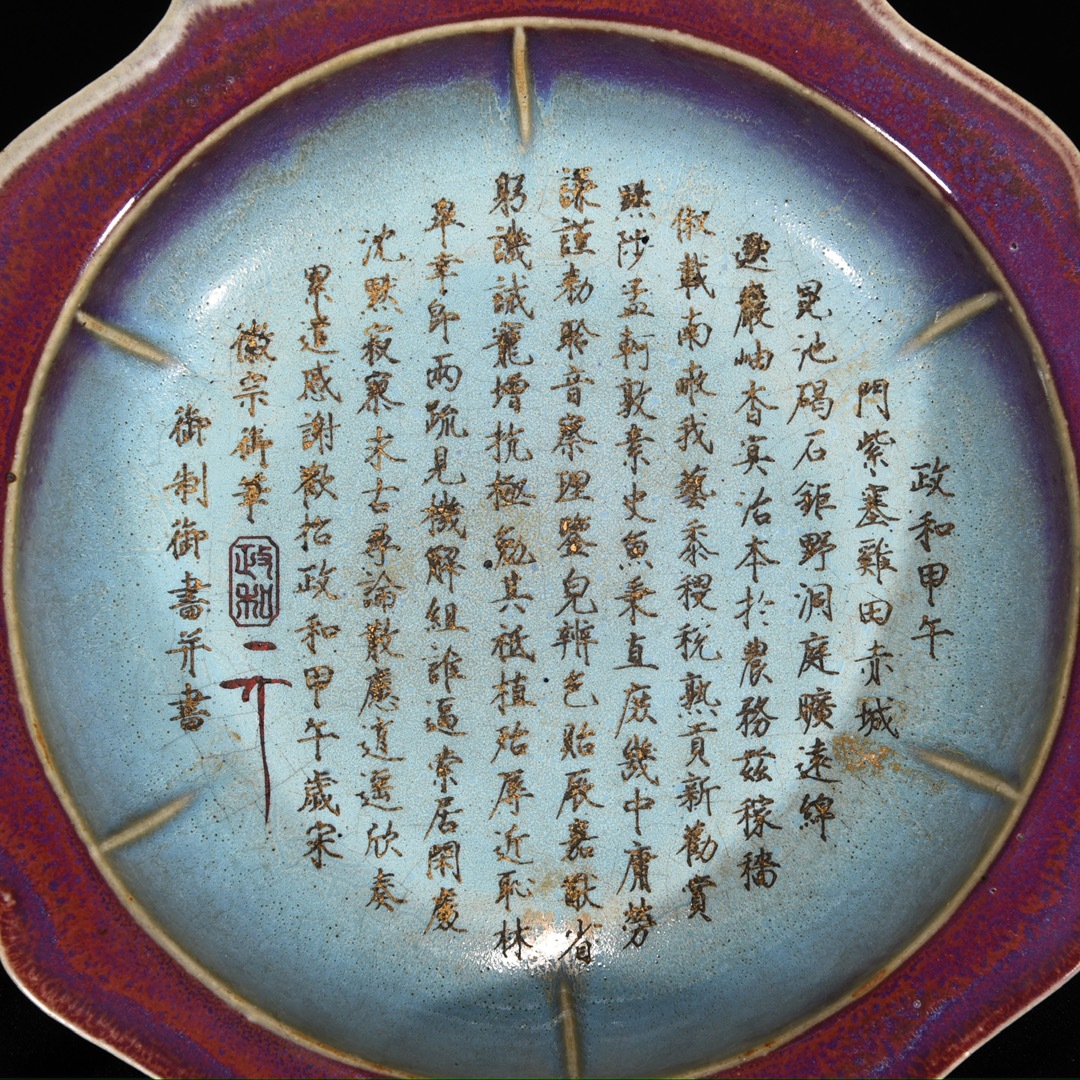 政和甲午
門紫塞雞田赤城
昆池碣石鉅野洞庭曠遠綿
邈巖岫杳冥治本於農務茲稼穡
俶載南畝我藝黍稷稅熟貢新勸賞
黜陟孟軻敦素史魚秉直庶幾中庸勞
謙謹勅聆音察理鑒皃辨色貽厥嘉猷省
躬譏誡寵增抗極勉其祗植殆辱近恥林
皋幸即兩疏見機解組誰逼索居閑處
沈默寂寥求古尋論散慮逍遙欣奏
累遣感謝歡招政和甲午歲宋
徽宗御筆 政和
御制御書并書